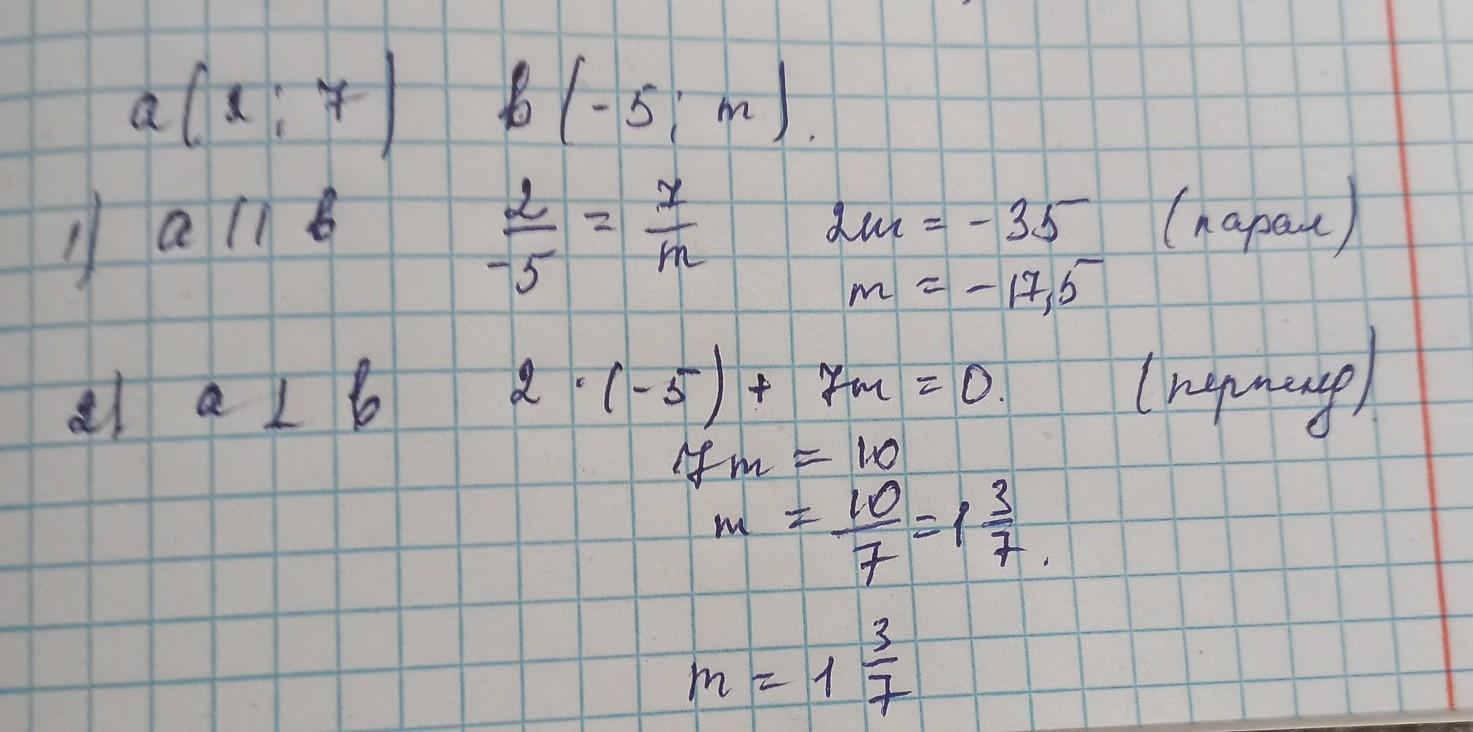 a(2; 7) b(-5; m).
1) a || b 2/-5 = 7/m 2m = -35 (парал)
m = -17,5
2) a ⊥ b 2 · (-5) + 7m = 0. (перпенд)
7m = 10
m = 10/7 = 1 3/7.
m = 1 3/7